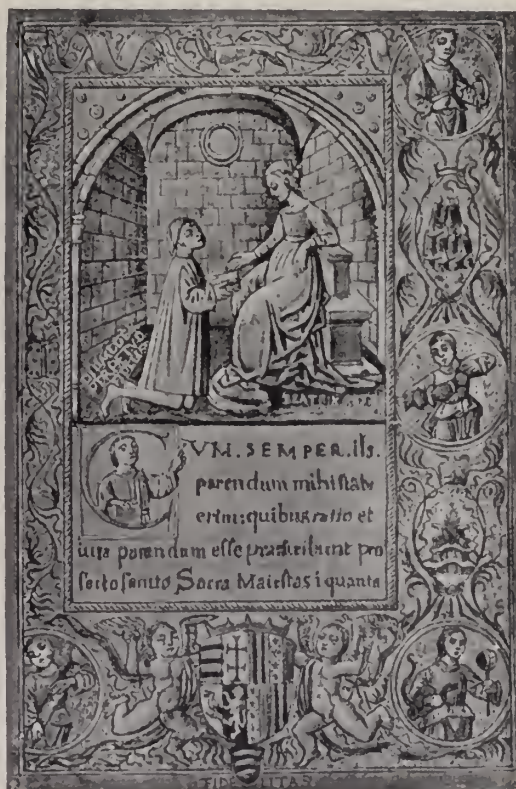 BEATRIX
VM. SEMPER. iis.
parendum mihi statu
erim: quibus ratio et
uita parendum esse praescribunt pro
fecto sentio Sacra Maiestas i quanta
FIDELITAS